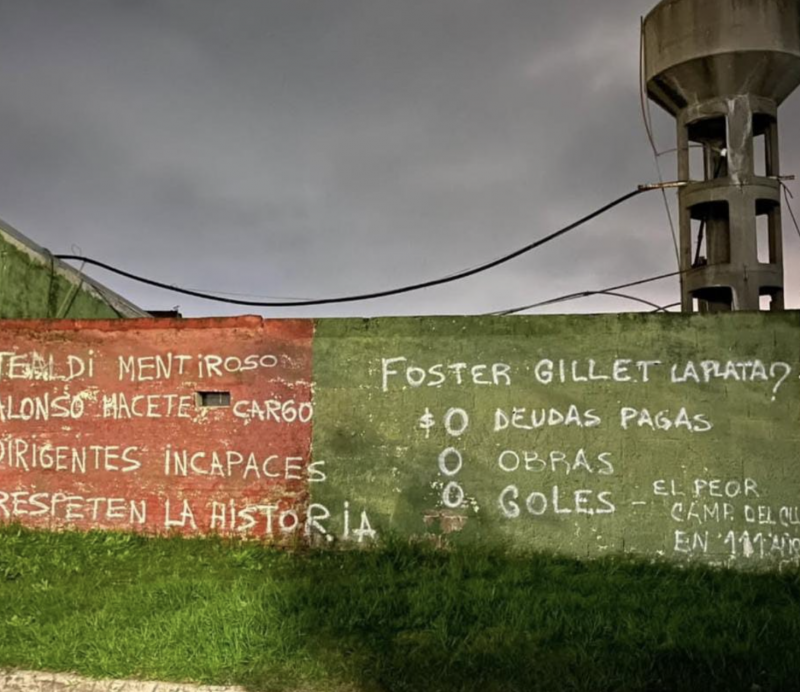 TEALDI MENTIROSO
ALONSO HACETE CARGO
DIRIGENTES INCAPACES
RESPETEN LA HISTORIA
FOSTER GILLET LAPLATA?
$0 DEUDAS PAGAS
0 OBRAS
0 GOLES - EL PEOR
CAMP. DEL
EN 111 AÑO